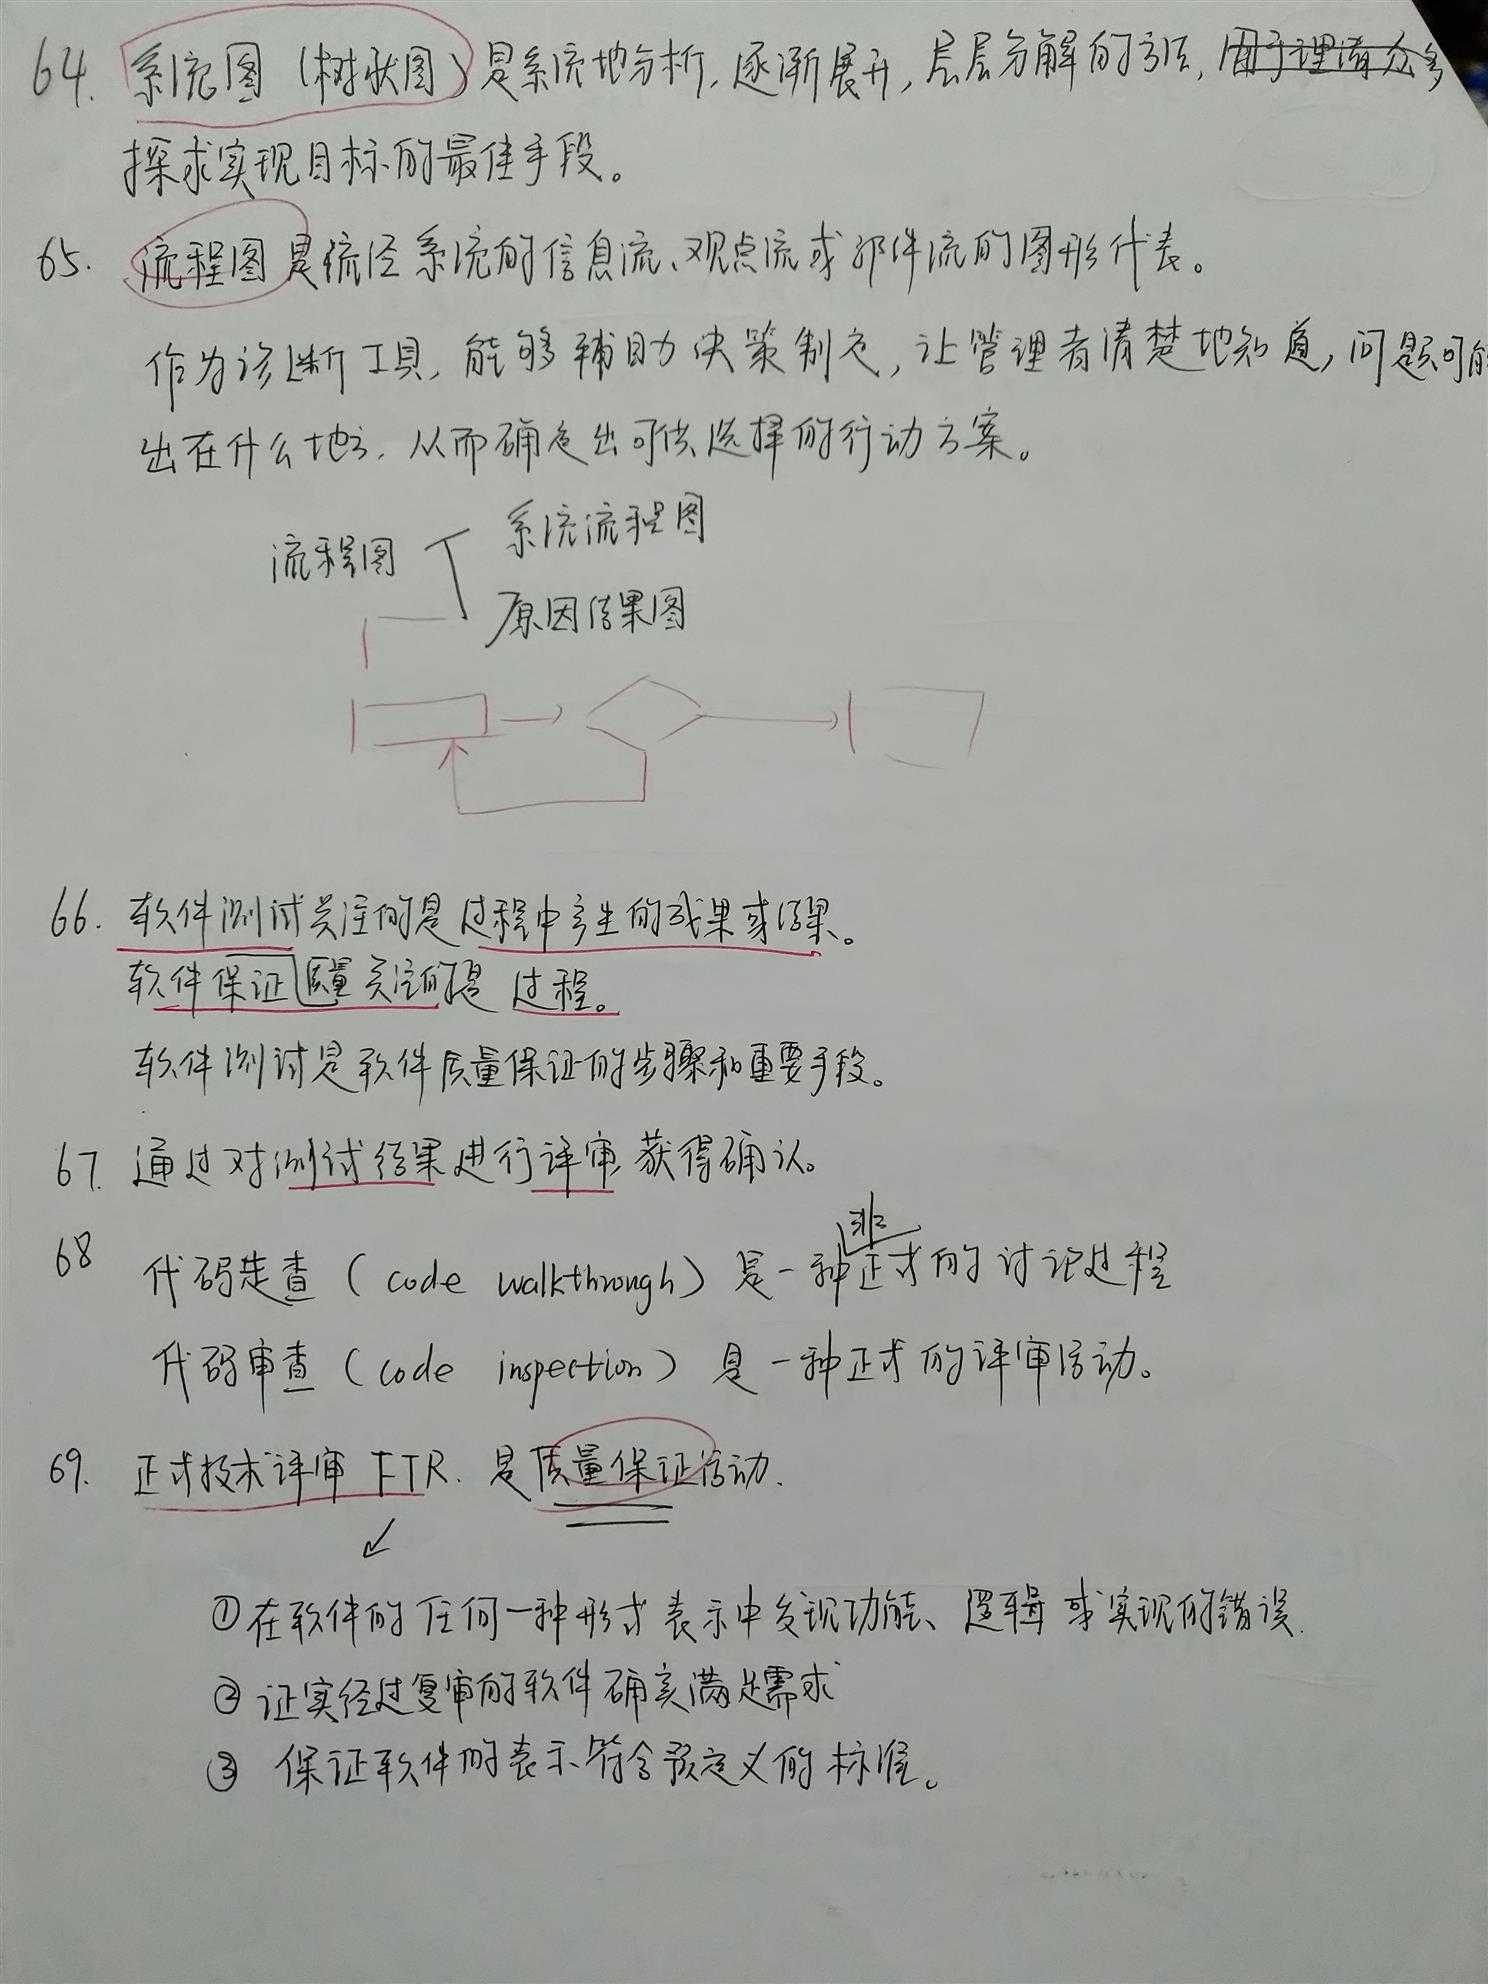 64. 系统图（树状图）是系统地分析,逐渐展开,层层分解的方法,用于理清众多
探求实现目标的最佳手段。
65. 流程图是流经系统的信息流、观点流或部件流的图形代表。
作为诊断工具,能够辅助决策制定,让管理者清楚地知道,问题可能
出在什么地方,从而确定出可供选择的行动方案。
系统流程图
流程图
原因结果图
66. 软件测试关注的是过程中产生的成果或结果。
软件保证质量关注的是过程。
软件测试是软件质量保证的步骤和重要手段。
67. 通过对测试结果进行评审,获得确认。
非
68 代码走查（code walkthrough）是一种正式的讨论过程
代码审查（code inspection）是一种正式的评审活动。
69. 正式技术评审 FTR. 是质量保证活动.
①在软件的任何一种形式表示中发现功能、逻辑或实现的错误.
② 证实经过复审的软件确实满足需求
③ 保证软件的表示符合预定义的标准。